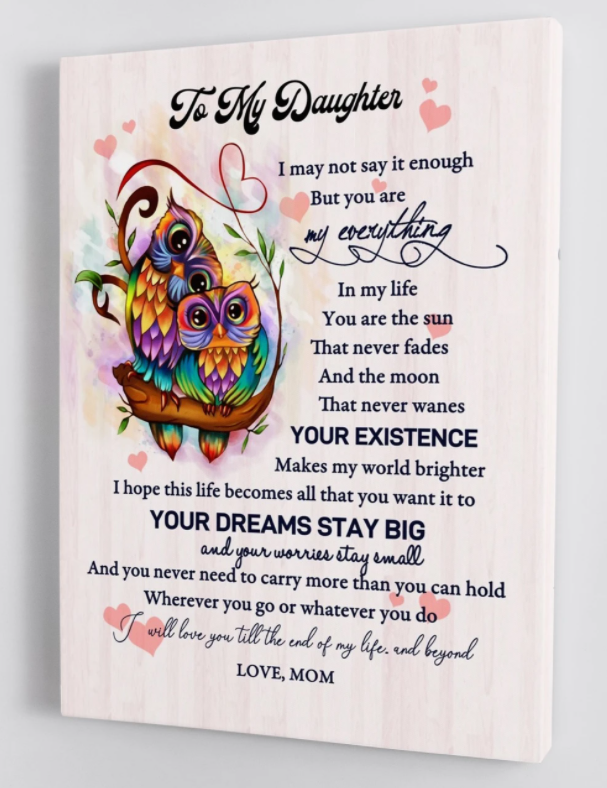 To My Daughter
I may not say it enough
But you are
my everything
In my life
You are the sun
That never fades
And the moon
That never wanes
YOUR EXISTENCE
Makes my world brighter
I hope this life becomes all that you want it to
YOUR DREAMS STAY BIG
and your worries stay small
And you never need to carry more than you can hold
Wherever you go or whatever you do
I will love you till the end of my life. and beyond
LOVE, MOM